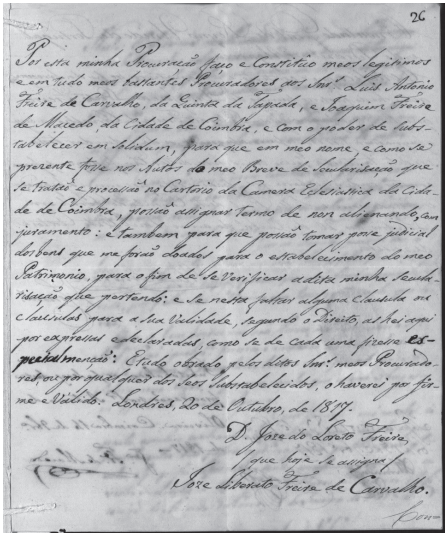 26
Por esta minha Procuração faço e Constitûo meos legitimos
e em tudo meos bastantes Procuradores aos Snr.s Luis Antonio
Freire de Carvalho, da Quinta da Tapada, e Joaquim Freire
de Macedo, da Cidade de Coimbra, e com o poder de subs-
tabelecer em Solidum, para que em meo nome, e como se
prezente fosse nos Autos do meo Breve de Secularisação que
se tratão e processão no Cartorio da Camera Eclesiastica da Cida-
de de Coimbra, possão assignar termo de non alienando, com
juramento: e tambem para que possão tomar posse judicial
dos bens que me forão doados para o estabelecimento do meo
Patrimonio, para o fim de se verificar a dita minha Secula-
risação que pertendo: e se nesta faltar alguma Clausula ou
clausulas para a sua validade, segundo o Direito, as hei aqui
por expressas e declaradas, como se de cada uma fizesse es-
pecial menção: E tudo obrado pelos ditos Snr.s meos Procurado-
res, ou por qualquer dos seos Substabelecidos, o haverei por fir-
me e Válido. Londres, 20 de Outubro, de 1817.
D. Joze do Loreto Freire,
que hoje se assigna
Joze Liberato Freire de Carvalho.